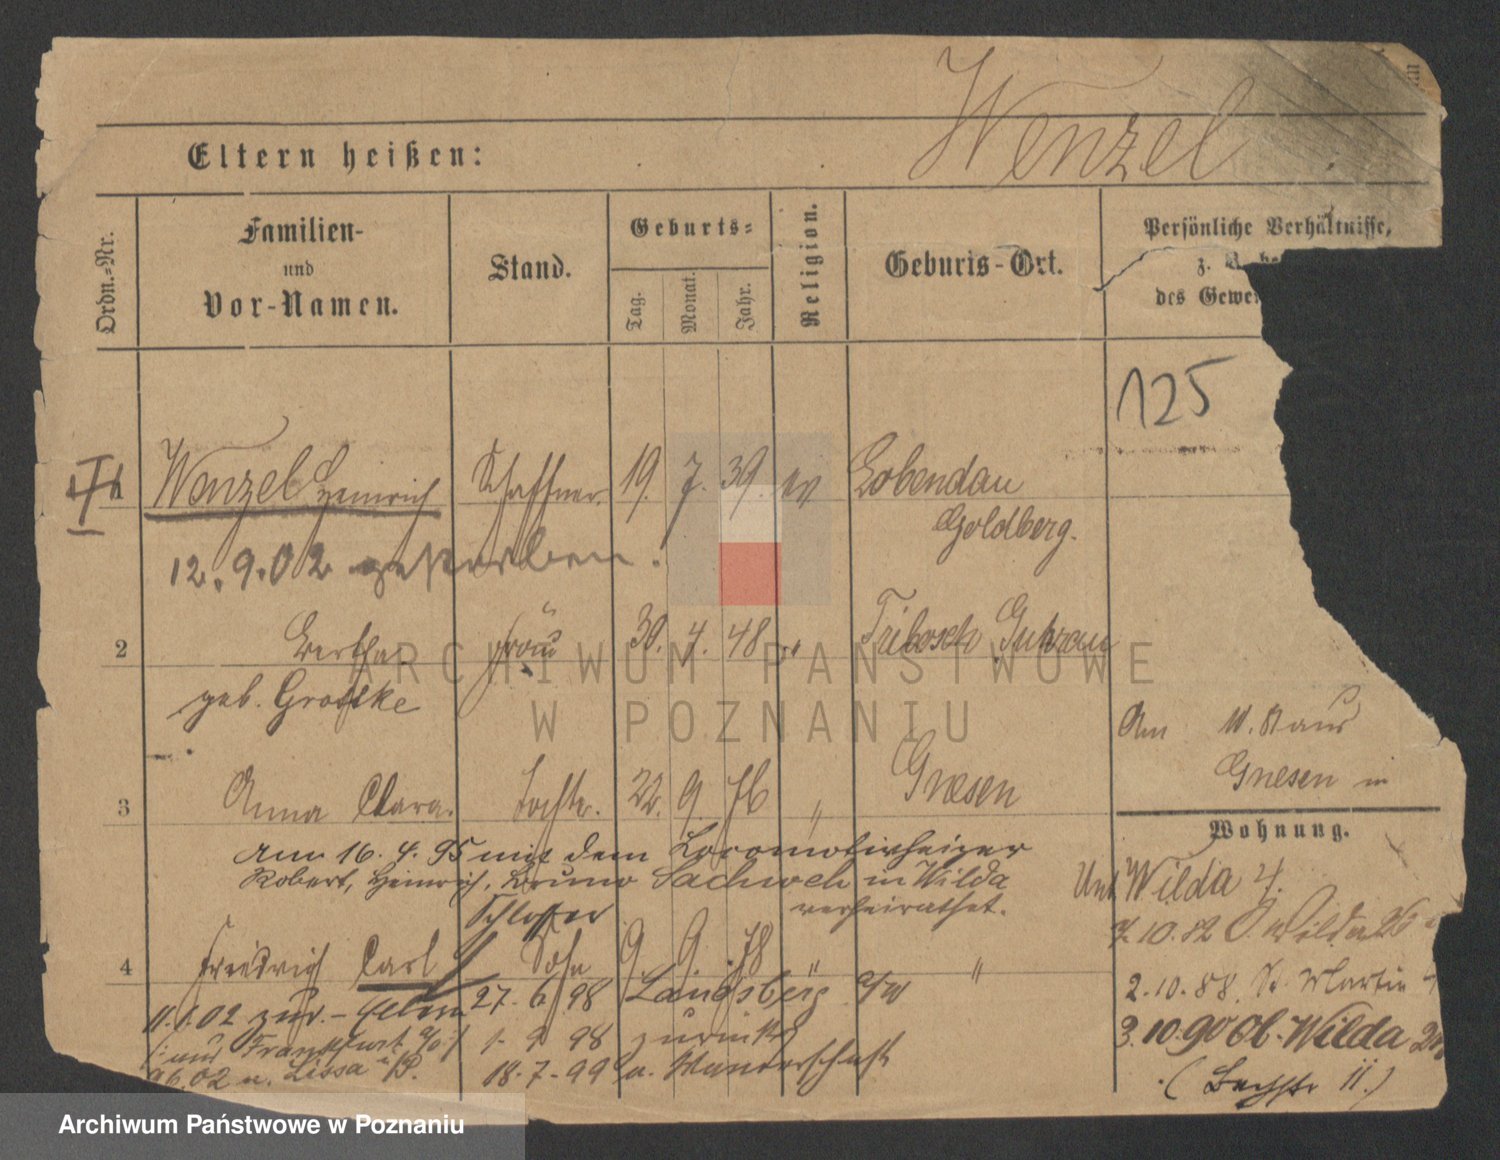 Wenzel
Eltern heißen:
Ordn.-Nr.
Familien-
und
Vor-Namen.
Stand.
Geburts-
Tag.
Monat.
Jahr.
Religion.
Geburts-Ort.
Persönliche Verhältnisse,
des Gewe
125
1 Wenzel Heinrich Schaffner 19. 7. 39. ev Lobendau
Goldberg.
12.9.02 gestorben.
2 Bertha Frau 30. 4. 48 " Tribusch Guhrau
geb. Grottke
Am
Gnesen in
3 Anna Clara. Tocht. 22. 9. 76 " Gnesen
Wohnung.
Am 16. 4. 95 mit dem Locomotivheizer
Robert, Heinrich, Bruno Sachweh in Wilda
verheirathet.
Unt Wilda 4.
Schlosser
4 Friedrich Carl Sohn 9 9. 78 " "
27. 6. 98 Landsberg a/W
11.1.02 zur. - Eltern
1. 9. 98 zurück
(: aus Frankfurt a/O :)
18.7.99 a. Wanderschaft
02 n. Lissa i P.
2.10.88. St Martin
3.10.90 Ob. Wilda
(Bachstr 11.)
ARCHIWUM PAŃSTWOWE
W POZNANIU
Archiwum Państwowe w Poznaniu